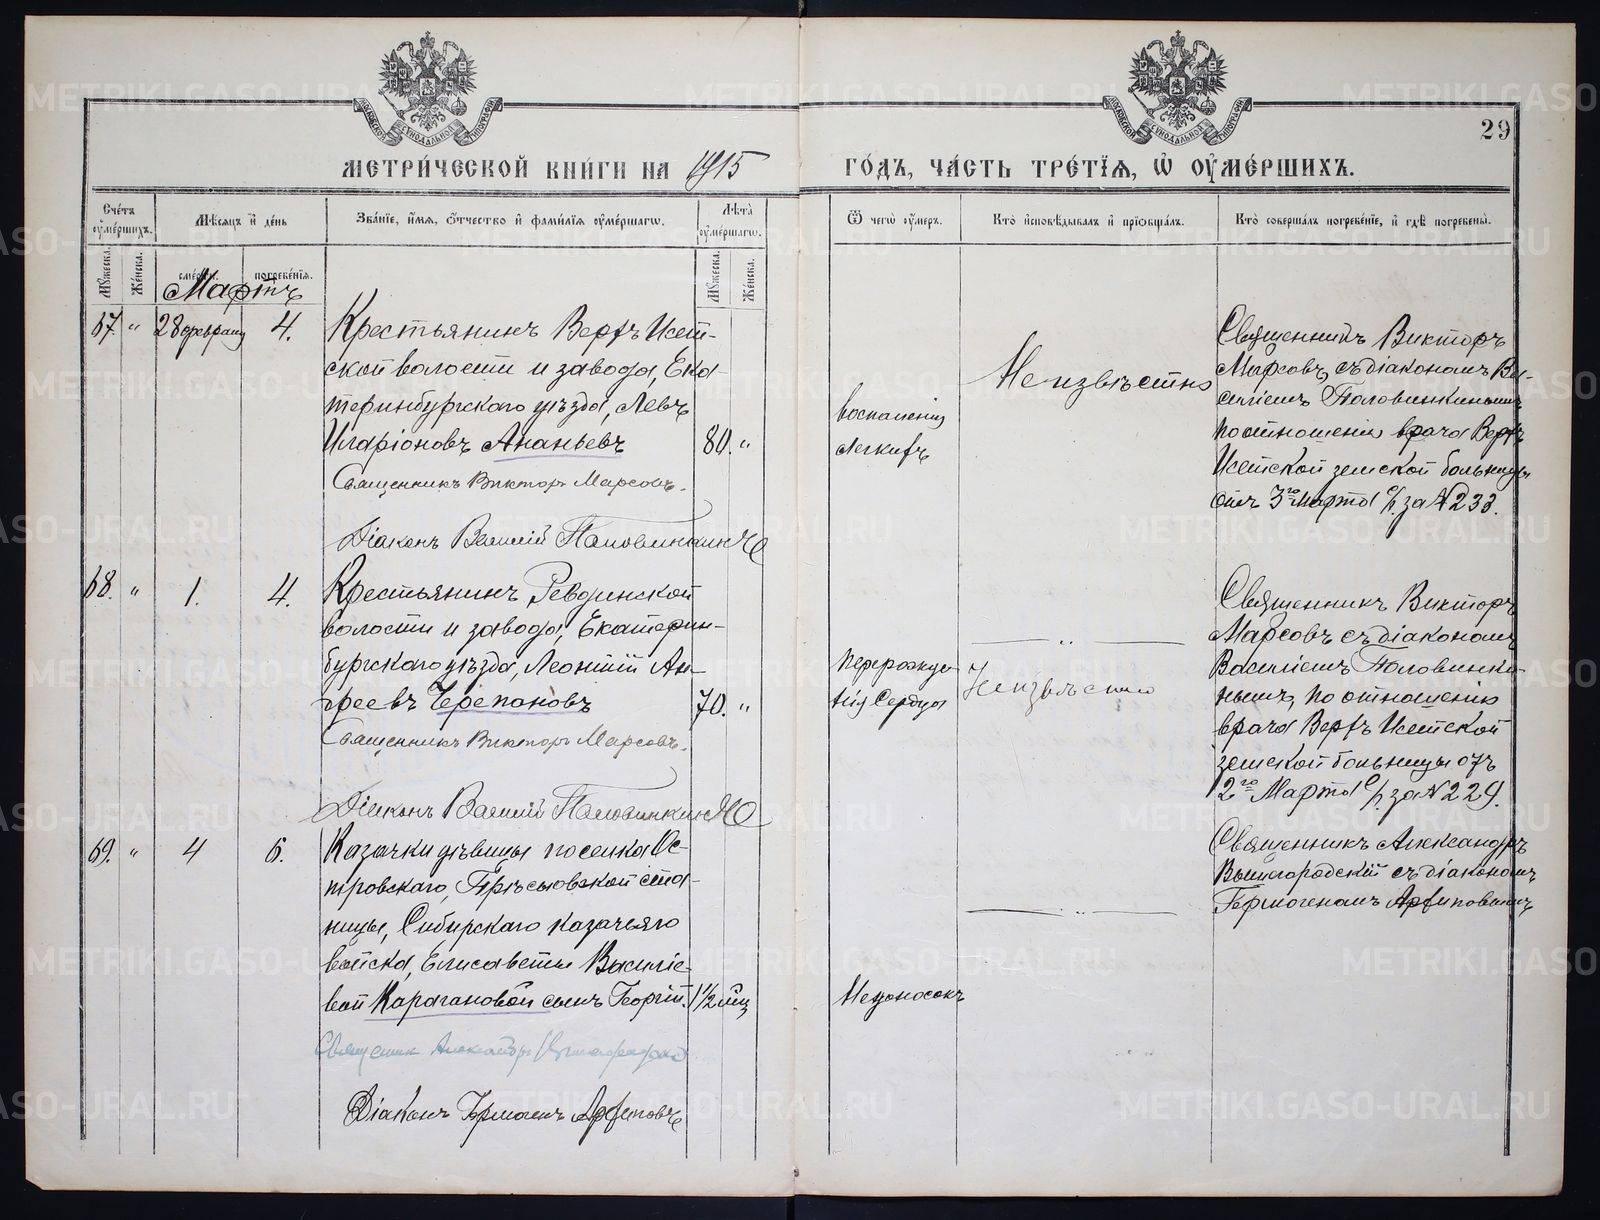 МОСКОВСКОЙ СѴНОДАЛЬНОЙ ТИПОГРАФІИ
МОСКОВСКОЙ СѴНОДАЛЬНОЙ ТИПОГРАФІИ
29
МЕТРИ́ЧЕСКОЙ КНИ́ГИ НА 1915
ГО́ДЪ, ЧА́СТЬ ТРЕ́ТІѦ, Ѡ҆ ОУ҆МЕ́РШИХЪ.
Сче́тъ оу҆ме́ршихъ.
Мѣ́сѧцъ и҆ де́нь
Зва́нїе, и҆́мѧ, ѻ҆́тчество и҆ фамı́лїѧ оу҆ме́ршагѡ.
Лѣ́та оу҆ме́ршагѡ.
Ѿ чегѡ̀ оу҆́меръ.
Кто̀ и҆сповѣ́дывалъ и҆ прїѡбща́лъ.
Кто̀ соверша́лъ погребе́нїе, и҆ гдѣ̀ погребены̀.
Мꙋ́жеска.
Же́нска.
сме́рти.
погребе́нїѧ.
Мꙋ́жеска.
Же́нска.
Мартъ
67. " 28 февраля 4.
Крестьянинъ Верхъ Исет-
ской волости и завода, Ека
теринбургскаго уѣзда, Левъ
Иларіоновъ Ананьевъ 80. "
Священникъ Викторъ Марсовъ.
Діаконъ Василій Половинкинъ
воспаленія
легкихъ
Неизвѣстно
Священникъ Викторъ
Марсовъ, съ діакономъ Ва-
силіемъ Половинкинымъ
по отношенію врача Верхъ
Исетской земской больницы
отъ 3го Марта с/г. за № 233.
68. " 1. 4.
Крестьянинъ, Ревдинской
волости и завода, Екатерин-
бургскаго уѣзда, Леонтій Ан-
дреевъ Черепановъ 70. "
Священникъ Викторъ Марсовъ.
Діаконъ Василій Половинкинъ
перерожде-
нія Сердца
— " —
Неизвѣстно
Священникъ Викторъ
Марсовъ съ діакономъ
Василіемъ Половинки-
нымъ, по отношенію
врача Верхъ Исетской
земской больницы отъ
2го Марта с/г. за № 229.
69. " 4 6.
Казачки дѣвицы поселка Ос-
тровскаго, Прѣсновской ста-
ницы, Сибирскаго казачьяго
войска, Елисаветы Василіе-
вой Карагановой сынъ Георгій. 1 1/2 мѣц
Священникъ Александръ Вышегородскій
Діаконъ Гермогенъ Архиповъ
Недоносокъ
— " —
Священникъ Александръ
Вышегородскій съ діакономъ
Гермогеномъ Архиповымъ
METRIKI.GASO-URAL.RU